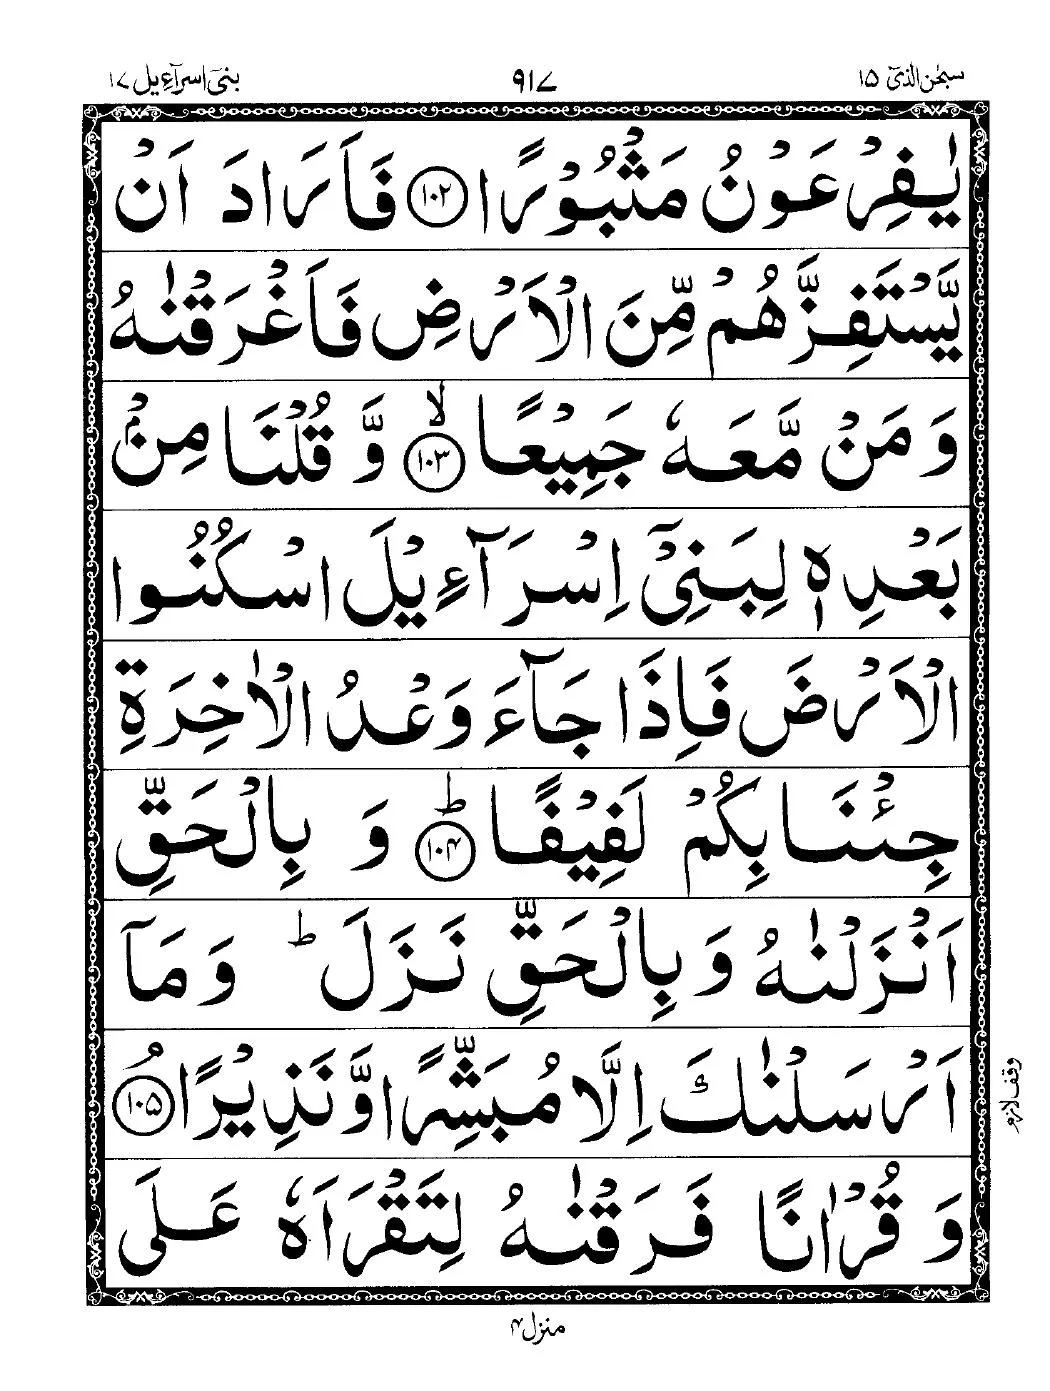 سبحٰن الذیٓ ١٥ ٩١٧ بنیٓ اسرآءیل ١٧
يٰفِرْعَوْنُ مَثْبُوْرًا ١٠٢ فَاَرَادَ اَنْ
يَّسْتَفِزَّهُمْ مِّنَ الْاَرْضِ فَاَغْرَقْنٰهُ
وَ مَنْ مَّعَهٗ جَمِيْعًا ۙ ١٠٣ وَّ قُلْنَا مِنْۢ
بَعْدِهٖ لِبَنِيْٓ اِسْرَآءِيْلَ اسْكُنُوا
الْاَرْضَ فَاِذَا جَآءَ وَعْدُ الْاٰخِرَةِ
جِئْنَا بِكُمْ لَفِيْفًا ؕ ١٠٤ وَ بِالْحَقِّ
اَنْزَلْنٰهُ وَ بِالْحَقِّ نَزَلَ ؕ وَ مَآ
اَرْسَلْنٰكَ اِلَّا مُبَشِّرًا وَّ نَذِيْرًا ۘ ١٠٥
وقف لازم
وَ قُرْاٰنًا فَرَقْنٰهُ لِتَقْرَاَهٗ عَلَى
منزل ۴